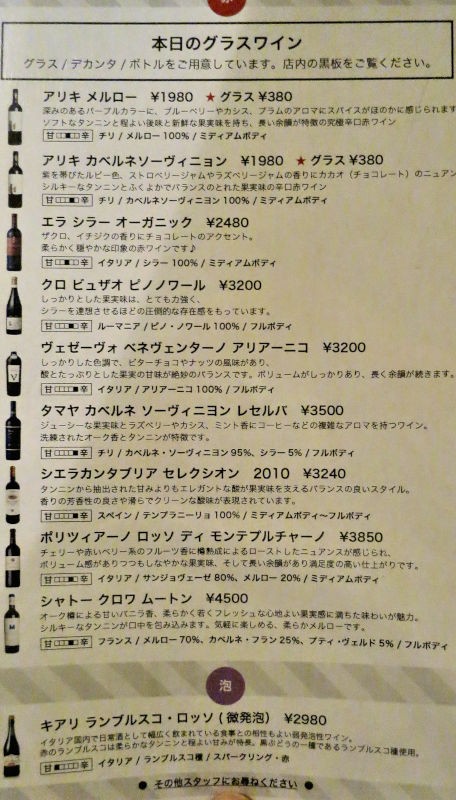 赤
本日のグラスワイン
グラス / デカンタ / ボトルをご用意しています。店内の黒板をご覧ください。
アリキ メルロー ¥1980 ★ グラス ¥380
深みのあるパープルカラーに、ブルーベリーやカシス、プラムのアロマにスパイスがほのかに感じられます
ソフトなタンニンと程よい後味と新鮮な果実味を持ち、長い余韻が特徴の究極辛口赤ワイン
甘□□□■□辛 チリ / メルロー 100% / ミディアムボディ
アリキ カベルネソーヴィニョン ¥1980 ★ グラス ¥380
紫を帯びたルビー色、ストロベリージャムやラズベリージャムの香りにカカオ（チョコレート）のニュアン
シルキーなタンニンとふくよかでバランスのとれた果実味の辛口赤ワイン
甘□□□■□辛 チリ / カベルネソーヴィニヨン 100% / ミディアムボディ
エラ シラー オーガニック ¥2480
ザクロ、イチジクの香りにチョコレートのアクセント。
柔らかく穏やかな印象の赤ワインです♪
甘□□■□□辛 イタリア / シラー 100% / ミディアムボディ
クロ ビュザオ ピノノワール ¥3200
しっかりとした果実味は、とても力強く、
シラーを連想させるほどの圧倒的な存在感をもっています。
甘□□□■□辛 ルーマニア / ピノ・ノワール 100% / フルボディ
ヴェゼーヴォ ベネヴェンターノ アリアーニコ ¥3200
しっかりした色調で、ビターチョコやナッツの風味があり、
酸とたっぷりとした果実の甘味が絶妙のバランスです。ボリュームがしっかりあり、長く余韻が続きます。
甘□□□■□辛 イタリア / アリアーニコ 100% / フルボディ
タマヤ カベルネ ソーヴィニヨン レセルバ ¥3500
ジューシーな果実味とラズベリーやカシス、ミント香にコーヒーなどの複雑なアロマを持つワイン。
洗練されたオーク香とタンニンが特徴です。
甘□□□■□辛 チリ / カベルネ・ソーヴィニヨン 95%、シラー 5% / フルボディ
シエラカンタブリア セレクシオン 2010 ¥3240
タンニンから抽出された甘みよりもエレガントな酸が果実味を支えるバランスの良いスタイル。
香りの芳香性の良さや滑らでクリーンな酸味が表現されています。
甘□□□■□辛 スペイン / テンプラニーリョ 100% / ミディアムボディ〜フルボディ
ポリツィアーノ ロッソ ディ モンテプルチャーノ ¥3850
チェリーや赤いベリー系のフルーツ香に樽熟成によるローストしたニュアンスが感じられ、
ボリューム感がありつつもしなやかな果実味、そして長い余韻があり満足度の高い仕上がりです。
甘□□□■□辛 イタリア / サンジョヴェーゼ 80%、メルロー 20% / ミディアムボディ
シャトー クロワ ムートン ¥4500
オーク樽による甘いバニラ香、柔らかく若くフレッシュな心地よい果実感に満ちた味わいが魅力。
シルキーなタンニンが口中を包み込みます。気軽に楽しめる、柔らかメルローです。
甘□□□■□辛 フランス / メルロー 70%、カベルネ・フラン 25%、プティ・ヴェルド 5% / フルボディ
泡
キアリ ランブルスコ・ロッソ ( 微発泡） ¥2980
イタリア国内で日常酒として幅広く飲まれている食事との相性もよい弱発泡性ワイン。
赤のランブルスコは柔らかなタンニンと程よい甘みが特長。黒ぶどうの一種であるランブルスコ種使用。
甘■□□□□辛 イタリア / ランブルスコ種 / スパークリング・赤
● その他スタッフにお尋ねください ●